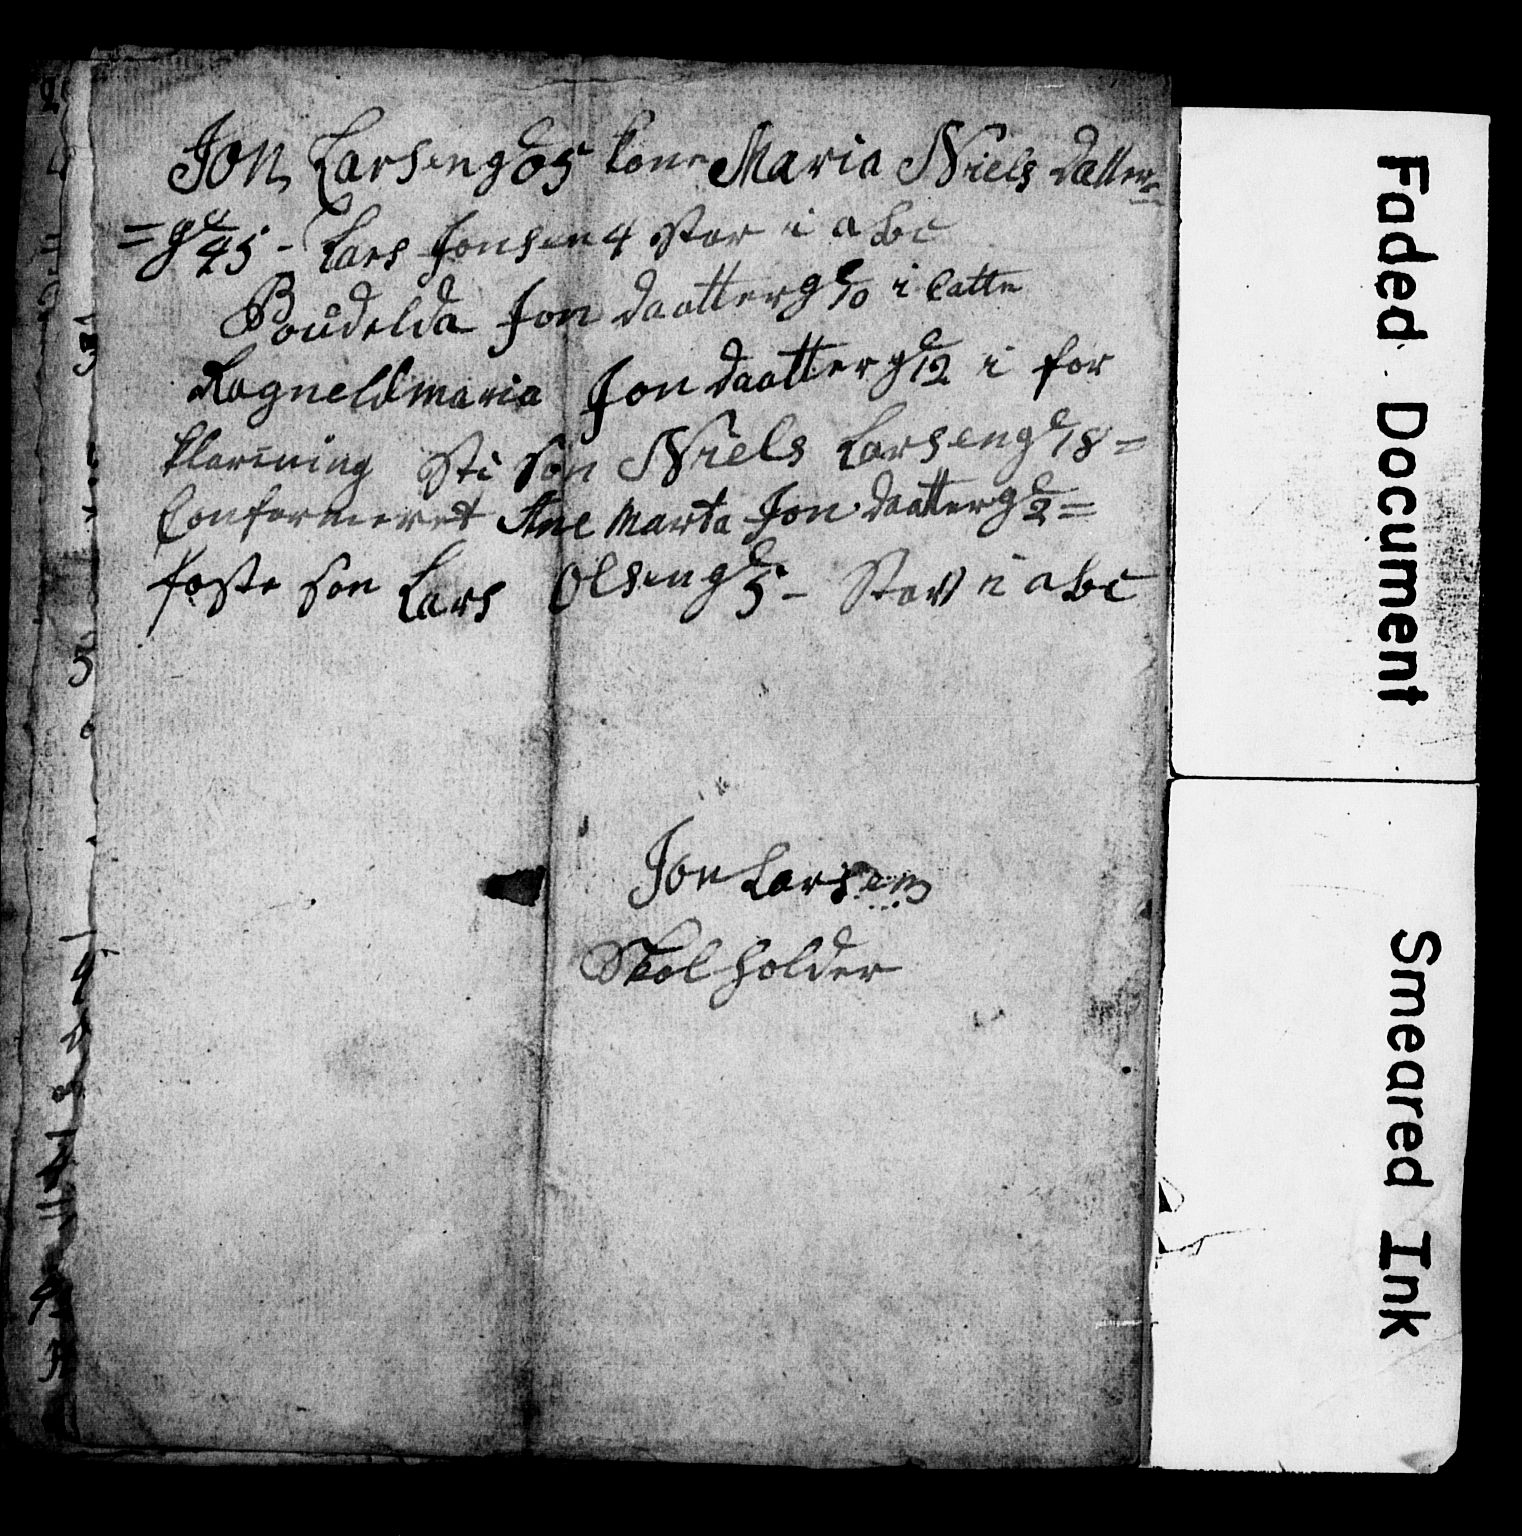 Jon Larsen gl 35 kone Maria Niels datter=
=gl 45 - Lars Jonsen 4 star i abc
Boudelda Jon daatter gl 10 i Catte
Ragneldmaria Jon daatter gl 12 i for
klarining sti sön Niels Larsen gl 18=
Confermeret Ane Marta Jon daatter gl 2=
foste sön Lars Olsen gl 5 - Star i abc
Jon Larsen
Skolholder
Faded Document
Smeared Ink